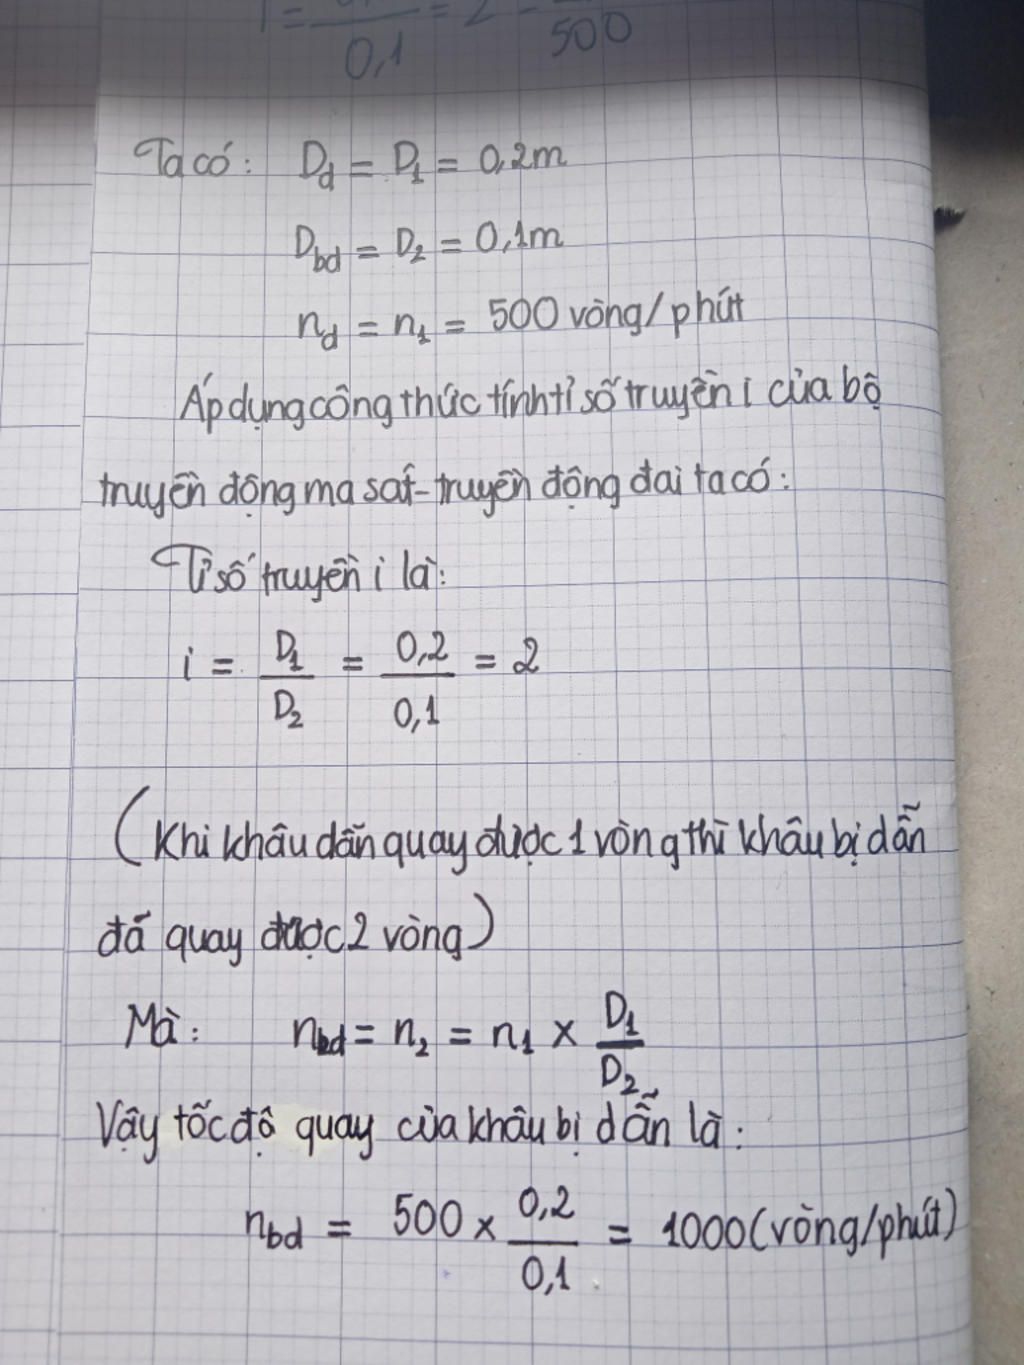 = —— = 2 = ——
0,1 500
Ta có: Dd = D1 = 0,2m
Dbd = D2 = 0,1m
nd = n1 = 500 vòng/phút
Áp dụng công thức tính tỉ số truyền i của bộ
truyền động ma sát - truyền động đai ta có:
Tỉ số truyền i là:
i = D1/D2 = 0,2/0,1 = 2
(Khi khâu dẫn quay được 1 vòng thì khâu bị dẫn
đã quay được 2 vòng)
Mà: nbd = n2 = n1 x D1/D2
Vậy tốc độ quay của khâu bị dẫn là:
nbd = 500 x 0,2/0,1 = 1000 (vòng/phút)